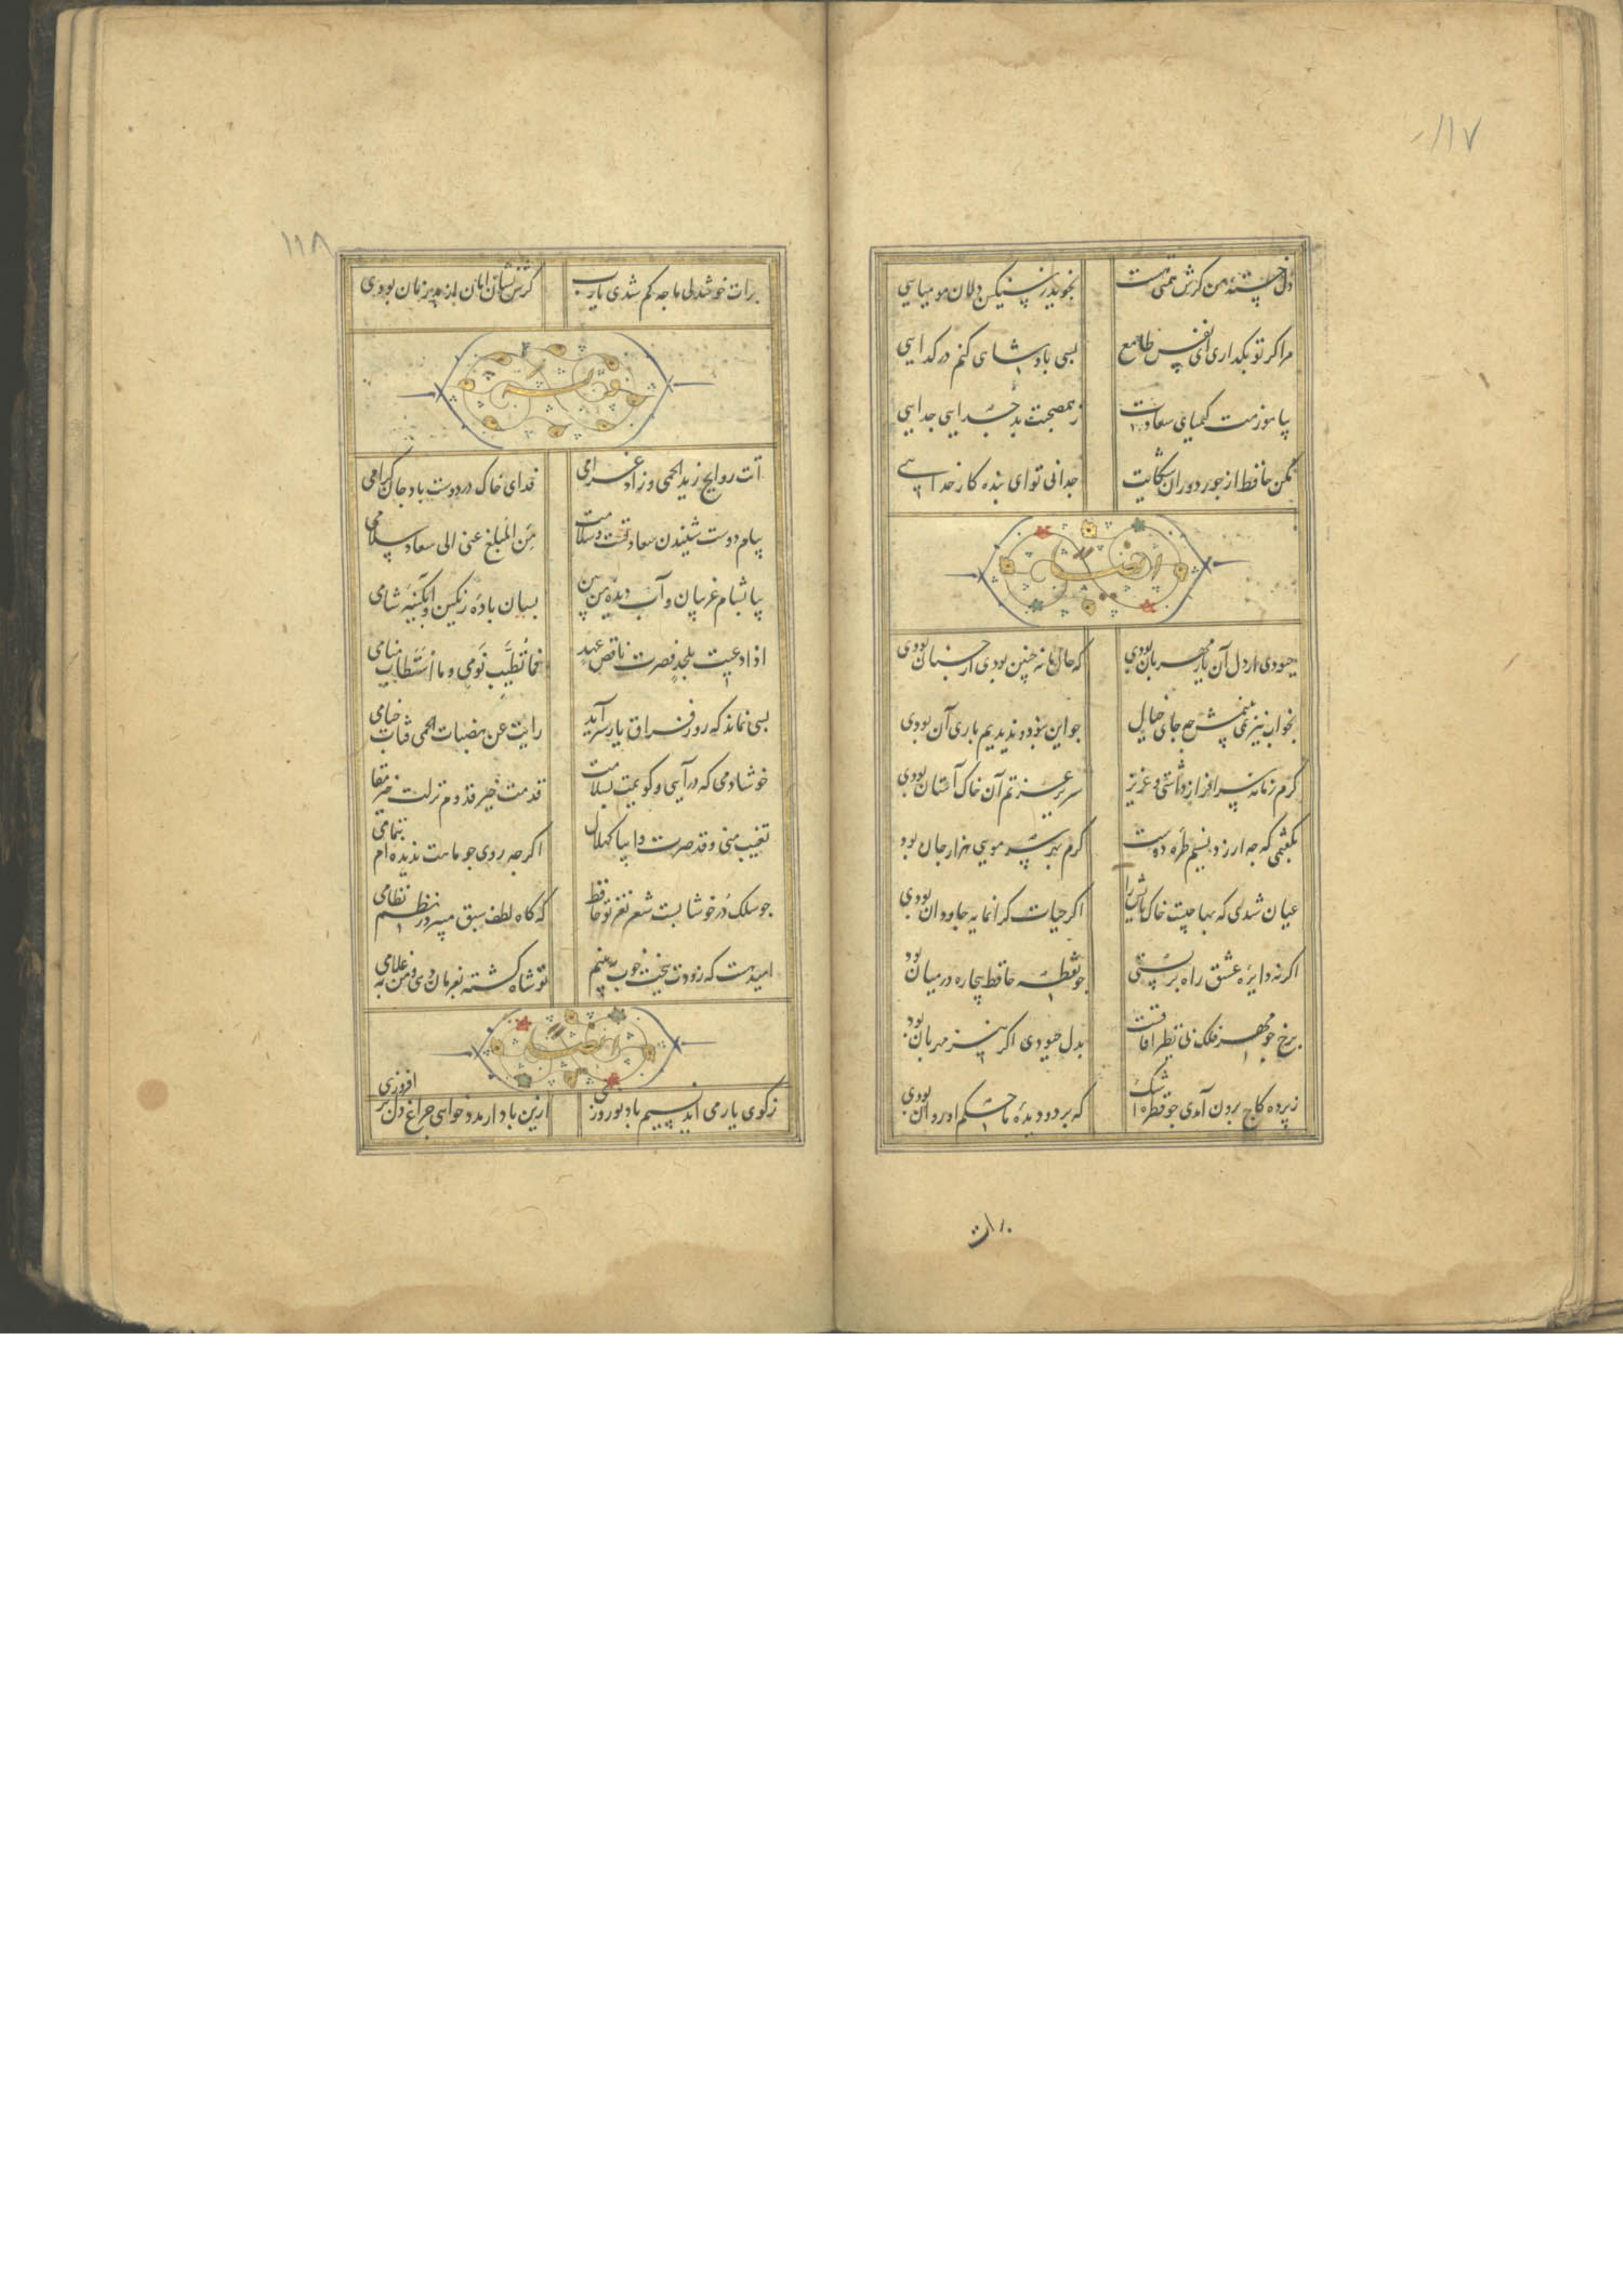 ١١٧
دل خسته من کرش همتی هست نخوید ز سنکین دلان مومیایی
مرا کر تو بکذاری ای نفس طامع بسی پادشاهی کنم در کدایی
بیاموزمت کیمیای سعادت ز همصحبت بد جدایی جدایی
مکن حافظ از جور دوران شکایت چه دانی تو ای بنده کار خدایی
ایضا له
چه بودی ار دل آن یار مهربان بودی که حال ما نه چنین بودی ار چنان بودی
بخواب نیز نمی بینمش چه جای خیال چو این نبود و ندیدیم باری آن بودی
کرم زمانه سرافراز داشتی و عزیز سریر عزتم آن خاک آستان بودی
بکفتمی که چه ارزد نسیم طره دوست کرم بهر سر مویی هزار جان بودی
عیان شدی که بها چیست خاک پایش را اکر حیات کرانمایه جاودان بودی
اکر نه دایره عشق راه بر بستی چو نقطه حافظ بیچاره در میان بودی
برخ چو مهر فلک بی نظیر آفاقست بدل چه بودی اکر نیز مهربان بودی
ز پرده کاج برون آمدی چو قطره اشک که بر دو دیده ما حکم او روان بودی
برات
١١٨
برات خوشدلی ما چه کم شدی یارب کرش نشان امان از بد زمان بودی
اتت روایح زید الحمی و زاد غرامی فدای خاک در دوست باد جان کرامی
پیام دوست شنیدن سعادتست و سلامت من المبلغ عنی الی سعاد سلامی
بیا بشام غریبان و آب دیده من بین بسان باده رنکین در آبکینه شامی
اذا دعیت بلجد فصرت ناقض عهد فما تطیب نومی و ما استطاب منامی
بسی نماند که روز فراق یار سر آید رایت عن هضبات الحمی قباب خیامی
خوشا دمی که در آیی و کویمت بسلامت قدمت خیر قدوم نزلت خیر مقامی
تغیب منی و قد صرت دایبا کهلال اکرچه روی چو ماهت ندیده ام بتمامی
چو سلک در خوشابست شعر نغز تو حافظ که کاه لطف سبق میبرد ز نظم نظامی
امید هست که زودت ببخت خوب ببینم تو شاه کشته بفرمان دهی و من بغلامی
ایضا له
ز کوی یار می آید نسیم باد نوروزی ازین باد ار مدد خواهی چراغ دل بر افروزی